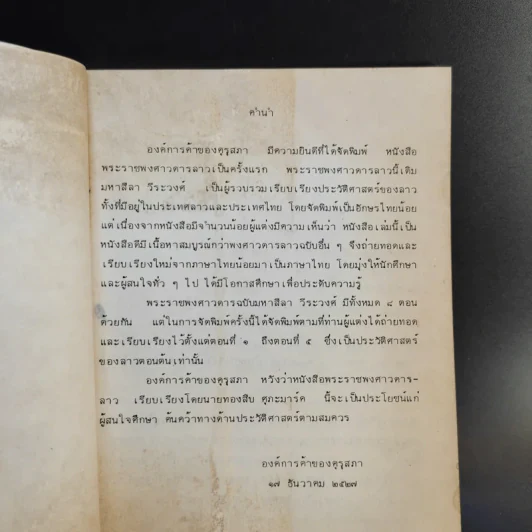 คำนำ
องค์การค้าของคุรุสภา มีความยินดีที่ได้จัดพิมพ์ หนังสือ
พระราชพงศาวดารลาวเป็นครั้งแรก พระราชพงศาวดารลาวนี้เดิม
มหาสีลา วีระวงศ์ เป็นผู้รวบรวมเรียบเรียงประวัติศาสตร์ของลาว
ทั้งที่มีอยู่ในประเทศลาวและประเทศไทย โดยจัดพิมพ์เป็นอักษรไทยน้อย
แต่เนื่องจากหนังสือมีจำนวนน้อยผู้แต่งมีความเห็นว่า หนังสือเล่มนี้เป็น
หนังสือดีมีเนื้อหาสมบูรณ์กว่าพงศาวดารลาวฉบับอื่น ๆ จึงถ่ายทอดและ
เรียบเรียงใหม่จากภาษาไทยน้อยมาเป็นภาษาไทย โดยมุ่งให้นักศึกษา
และผู้สนใจทั่ว ๆ ไป ได้มีโอกาสศึกษาเพื่อประดับความรู้
พระราชพงศาวดารฉบับมหาสีลา วีระวงศ์ มีทั้งหมด ๘ ตอน
ด้วยกัน แต่ในการจัดพิมพ์ครั้งนี้ได้จัดพิมพ์ตามที่ท่านผู้แต่งได้ถ่ายทอด
และเรียบเรียงไว้ตั้งแต่ตอนที่ ๑ ถึงตอนที่ ๕ ซึ่งเป็นประวัติศาสตร์
ของลาวตอนต้นเท่านั้น
องค์การค้าของคุรุสภา หวังว่าหนังสือพระราชพงศาวดาร-
ลาว เรียบเรียงโดยนายทองสืบ ศุภะมาร์ค นี้จะเป็นประโยชน์แก่
ผู้สนใจศึกษา ค้นคว้าทางด้านประวัติศาสตร์ตามสมควร
องค์การค้าของคุรุสภา
๑๗ ธันวาคม ๒๕๒๗